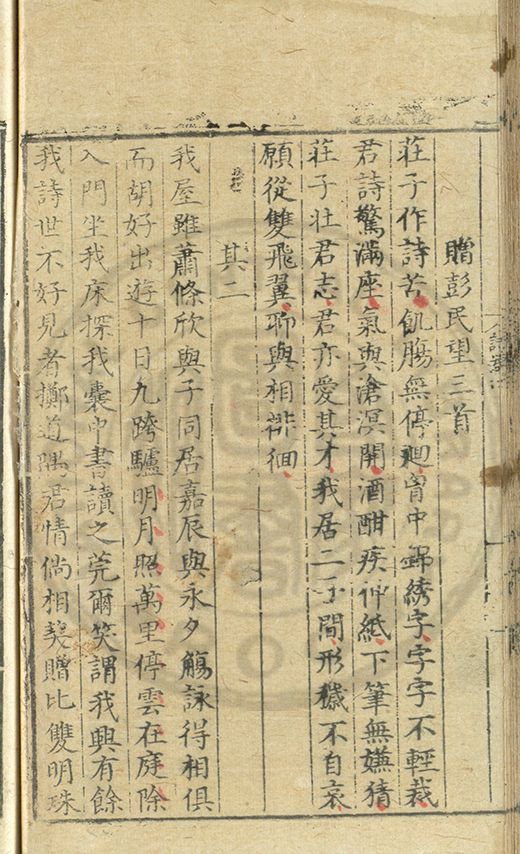 贈彭民望三首
莊子作詩苦飢腸無停廻胷中錦綉字字字不輕裁
君詩驚滿座氣與滄溟開酒酣疾伸紙下筆無嫌猜
莊子壯君志君亦愛其才我居二子間形穢不自哀
願從雙飛翼聊與相徘徊
其二
我屋雖蕭條欣與子同居嘉辰與永夕觴詠得相俱
而胡好出遊十日九跨驢明月照萬里停雲在庭除
入門坐我床探我囊中書讀之莞爾笑謂我興有餘
我詩世不好見者擲道隅君情倘相契贈比雙明珠